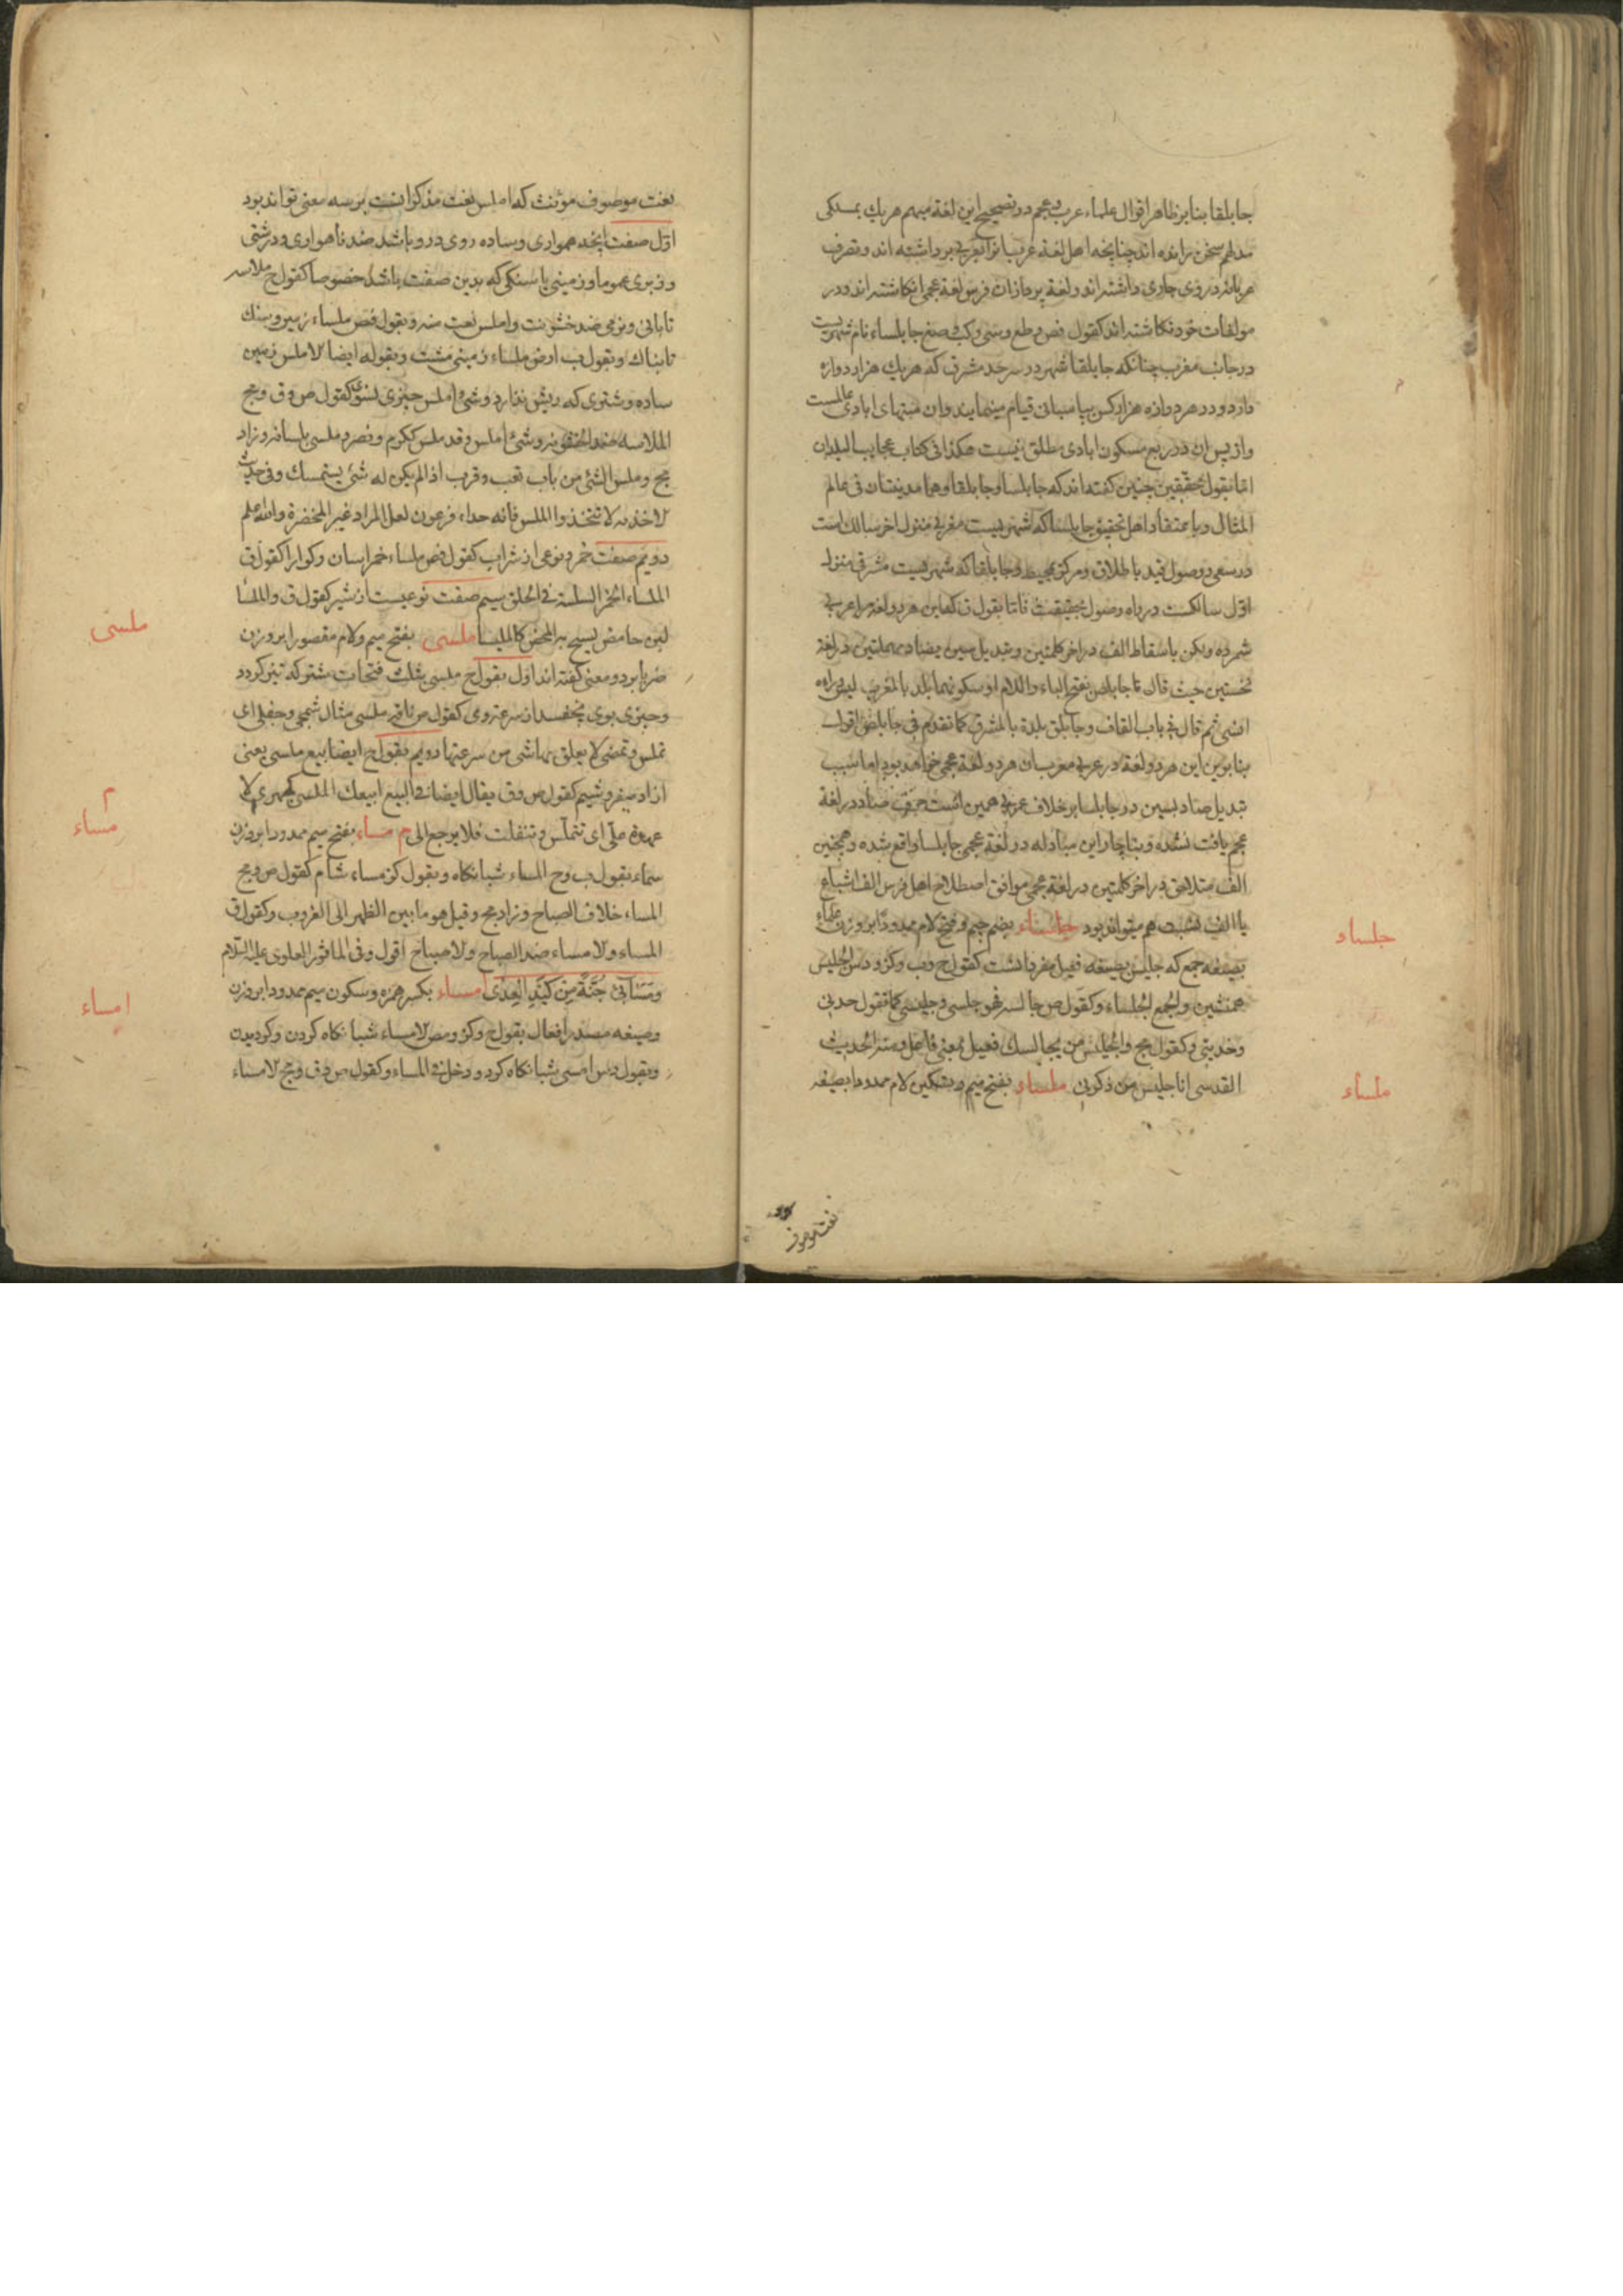 جابلقا بنابر ظاهر اقوال علماء عرب و عجم در تصحیح این لغة مبهم هریك بمسلکی
سخن رانده اند چنانچه اهل لغة عرب بتعریب برداشته اند و تصرف
جاری داشته اند و لغة پردازان فرس لغة عجمی انکاشته اند و در
مولفات خود نکاشته اند کقول جابلساء نام شهریست
در جانب مغرب چنانکه جابلقا شهر در سرحد مشرق که هریك هزار دوازه
دارد و در هر دوازه هزار کس بپاسبانی قیام مینمایند و ان منتهای ابادی عالمست
و از پس ان در ربع مسکون ابادی مطلق نیست هکذا فی کتاب عجایب البلدان
اما بقول محققین چنین کفته اند که جابلسا و جابلقا و هما مدینتان فی عالم
المثال و باعتقاد اهل تحقیق جابلسا که شهریست مغربی منزل اخر سالك است
در سعی وصول قید باطلاق و مرکز بمحیط و جابلقا که شهریست مشرقی منزل
اول سالکست در راه وصول بحقیقت فاما بقول ق که این هر دو لغة را عربی
شمرده و لکن باسقاط الف در اخر کلمتین و بتبدیل سین بصاد مهملتین در لغة
نخستین حیث قال جابلص بفتح الباء واللام او سکونها بلد بالمغرب لیس وراءه
انسی ثم قال فی باب القاف و جابلق بلدة بالمشرق کما تقدم فی جابلص اقول
بنابرین این هر دو لغة در عربی معربان هر دو لغة عجمی خواهد بود اما سبب
تبدیل صاد بسین در جابلسا برخلاف عربی همین است حرف صاد در لغة
عجم یافت نشده و بناچار این مبادله در لغة عجمی جابلسا واقع شده و همچنین
الف متلاحق در اخر کلمتین در لغة عجمی موافق اصطلاح اهل فرس الف اشباع
یا الف نسبت هم میتواند بود جلساء بضم جیم و فتح لام ممدودا بروزن علماء
بصیغه جمع که جلیس بصیغه فعیل مفرد انست کقول ح و ب و کز و دس الجلیس
همنشین و الجمع الجلساء و کقول ص جالسته فهو جلسی و جلیسی کما تقول خدنی
و خدینی و کقول مج و الجلیس من یجالسك فعیل بمعنی فاعل و منه الحدیث
القدسی انا جلیس من ذکرنی ملساء بفتح میم و تسکین لام ممدودا بصیغه
جلساء
ملساء
نعت موصوف
نعت موصوف مونث که املس نعت مذکر انست برسه معنی تواند بود
اول صفت انچه همواری و ساده روی درو باشد ضد ناهمواری و درشتی
و زبری عموما و زمینی یا سنکی که بدین صفت باشد خصوصا کقول ح ملاسه
تابانی و نرمی ضد خشونت و املس نعت منه و بقول ملساء زمین و سنك
تابناك و بقول ب ارض ملساء زمینی و بقوله ایضا الاملس زمین
ساده و شتری که ریش ندارد و شیء املس چیزی لسوی کقول ص و ق و مج
الملاسه ضد الخشونه و شیء املس و قد ملس ککرم و نصر و ملسی بلسانه و زاد
مج و ملس الشیء من باب تعب و قرب اذا لم یکن له شیء یستمسك و فی حدیث
لا تتخذوا الملس فانه حذاء فرعون لعل المراد غیر المخصرة والله اعلم
دویم صفت خمر و نوعی از شراب کقول ملساء خمر اسان و کوارا کقول ق
الملساء الخمر السلسة فی الحلق سیم صفت نوعیست از شیر کقول ق و الملسا
لبن حامض یشج به المحض کالملیسا ملسی بفتح میم و لام مقصورا بر وزن
ضربا بر دو معنی کفته اند اول بقول ح ملسی بثلث فتحات مشترکه تیز کردد
کقول ص ناقة ملسی مثال شمجی و جفلی ای
تملس و تمضی لا یعلق بها شی من سرعتها دویم بقول ح ایضا بیع ملسی یعنی
ازاد میفروشیم کقول ص و ق یقال ایضا فی البیع ابیعك الملسی کجمزی لا
عهدة علی ای تتملس و تنفلت فلا یرجع الی م مساء بفتح میم ممدودا بر وزن
سماء بقول ب و ح المساء شبانکاه و بقول کز مساء شام کقول ص و مج
المساء خلاف الصباح و زاد مج و قیل هو ما بین الظهر الی الغروب و کقول ق
المساء و الامساء ضد الصباح و الاصباح اقول و فی الماثور العلوی علیه السلام
و مسائی جنة من کید العدی امساء بکسر همزه و سکون میم ممدودا بر وزن
و صیغه مصدر افعال بقول ح و کز و مص الامساء شبانکاه کردن و کردیدن
و بقول دس امسی شبانکاه کرد و دخل فی المساء و کقول ص و ق و مج الامساء
ملسی
م
مساء
امساء